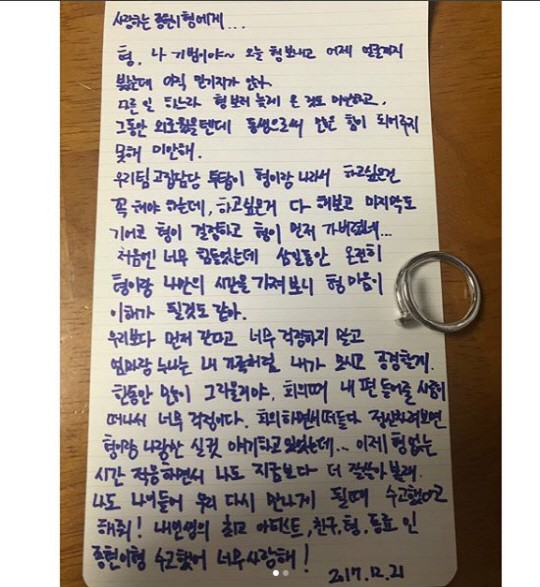 사랑하는 종현이형에게...
형, 나 기범이야~ 오늘 형 보내고 어제 얼굴까지
봤는데 아직 믿기지가 않아.
다른 일 하느라 형 보러 늦게 온 것도 미안하고,
그동안 외로웠을텐데 동생으로써 많은 힘이 되어주지
못해 미안해.
우리팀 고집담당 투탑이 형이랑 나라서 하고싶은건
꼭 해야 하는데, 하고싶은거 다 해보고 마지막도
기어코 형이 결정하고 형이 먼저 가버렸네...
처음엔 너무 힘들었는데 삼일동안 온전히
형이랑 나만의 시간을 가져보니 형 마음이
이해가 될것도 같아.
우리보다 먼저 간다고 너무 걱정하지 말고
엄마랑 누나는 내 가족처럼 내가 모시고 공경할게.
한동안 많이 그리울거야. 회의때 내 편 들어줄 사람이
떠나서 너무 걱정이다. 회의하면서 떠들다 정신차려보면
형이랑 나랑만 실컷 얘기하고 있었는데... 이제 형 없는
시간 적응하면서 나도 지금보다 더 잘살아볼래.
나도 나이들어 우리 다시 만나게 될때 수고했다고
해줘! 내인생의 최고 아티스트, 친구, 형, 동료 인
종현이형 수고했어 너무사랑해!
2017.12.21